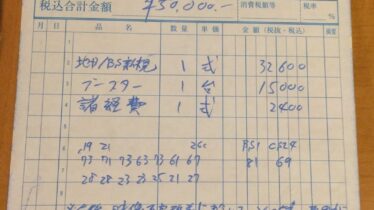 税込合計金額 ¥50,000.- 消費税額等 税率 %
月 日 品 名 数量 単価 金額(税抜・税込)
地D/BS新規 1 式 32600
ブースター 1 台 15000
諸経費 1 式 2400
19 21 26c BS1 CS24
73 71 73 63 73 61 67 81 69
28 28 23 23 25 21 27